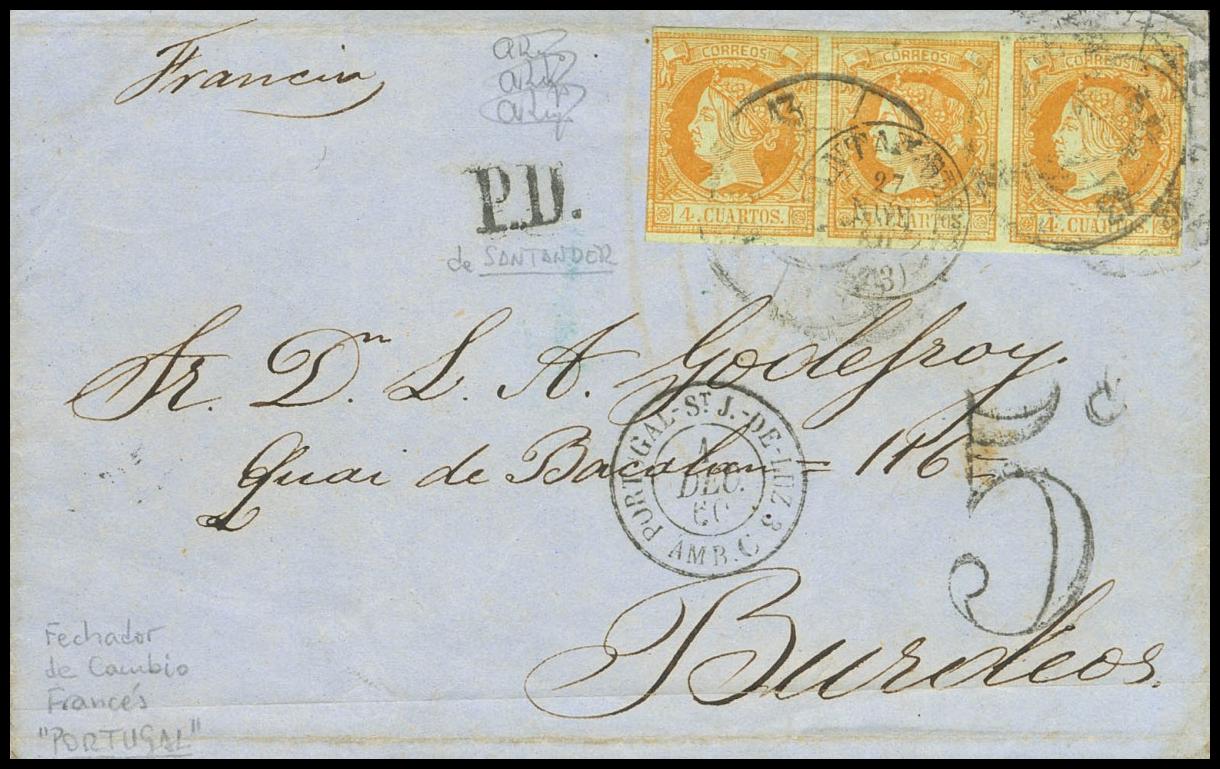 Francia
CORREOS
CORREOS
CORREOS
4. CUARTOS.
CUARTOS.
4. CUARTOS.
13
27
(13)
P.D.
de SANTANDER
Sr. Dn. L. A. Godefroy.
PORTUGAL-ST. J.-DE-LUZ 3
DEC.
60
AMB. C
Quai de Bacalan = 116
5 c
Burdeos.
Fechador
de Cambio
Francés
"PORTUGAL"